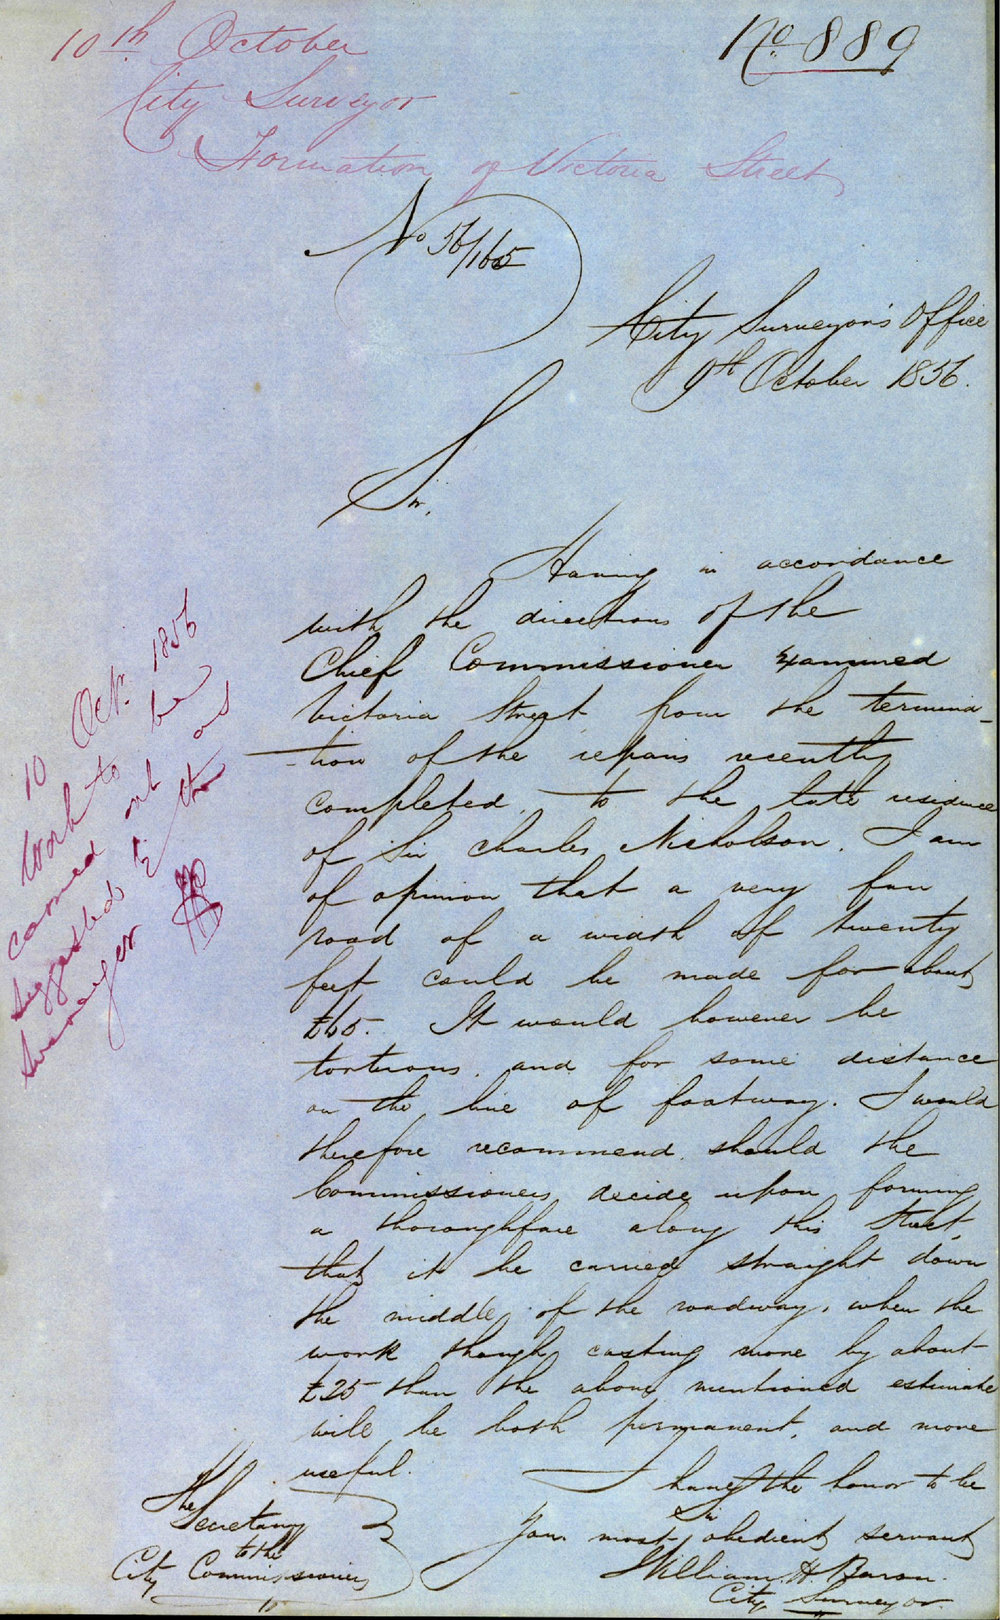 10th October
No 889
City Surveyor
Formation of Victoria Street
No 56/165
City Surveyor's Office
9th October 1856.
Sir,
Having in accordance
with the directions of the
Chief Commissioner examined
Victoria Street from the termina-
-tion of the repairs recently
completed, to the late residence
of Sir Charles Nicholson. I am
of opinion that a very fair
road of a width of twenty
feet could be made for about
£65. It would however be
tortuous, and for some distance
on the line of footway. I would
therefore recommend, should the
Commissioners decide upon forming
a thoroughfare along this Street,
that it be carried straight down
the middle of the roadway, when the
work though costing more by about
£25 than the above mentioned estimate
will be both permanent, and more
useful.
I have the honor to be
Sir
Your most obedient servant
William H. Baron.
City Surveyor.
The
Secretary
to the
City Commissioners
10 Octr. 1856
Work to be
carried out as
suggested by the
Surveyor